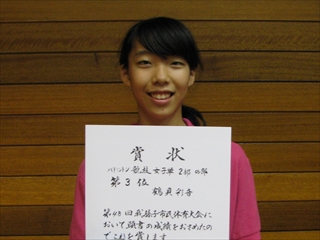 賞状
バドミントン競技 女子単 2部の部
第3位
鶴真彩香
第48回我孫子市民体育大会に
おいて頭書の成績をおさめたの
でこれを賞します